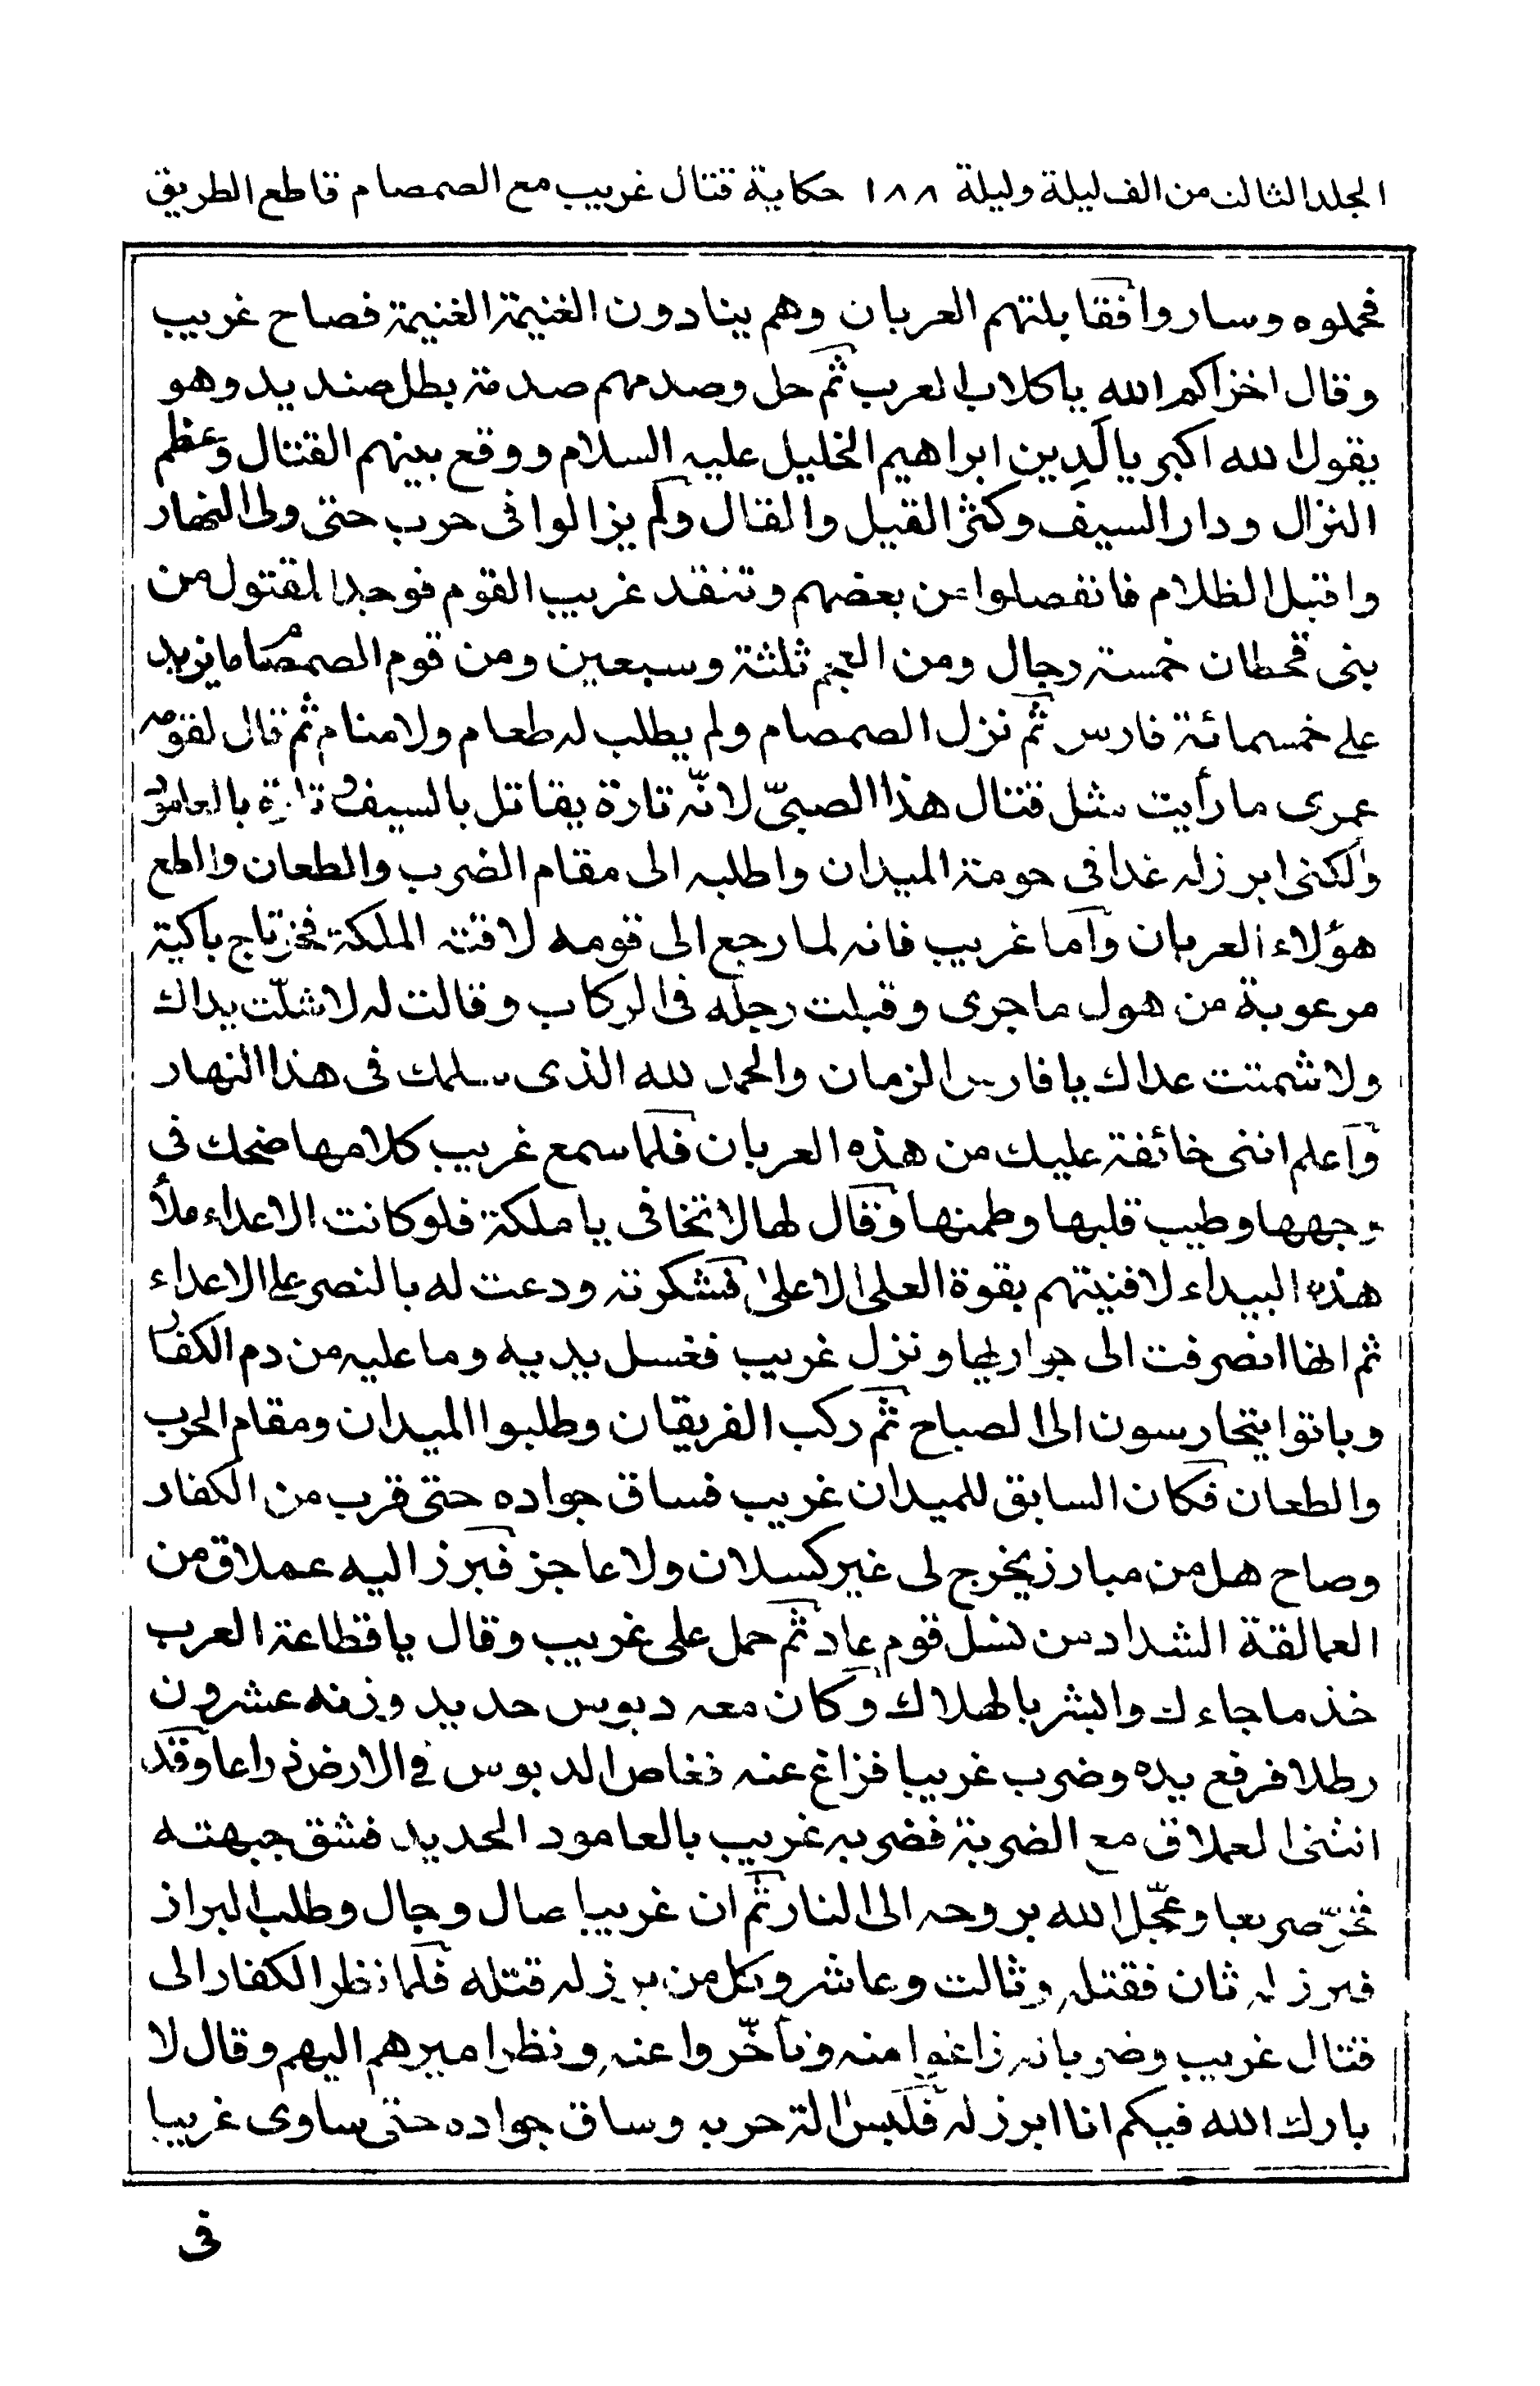 المجلد الثالث من الف ليلة وليلة ١٨٨ حكاية قتال غريب مع الصمصام قاطع الطريق
فحملوه وساروا فقابلتهم العربان وهم ينادون الغنيمة الغنيمة فصاح غريب
وقال اخزاكم الله ياكلاب العرب ثم حل وصدمهم صدمة بطل صنديد وهو
يقول الله اكبر يالَدِين ابراهيم الخليل عليه السلام ووقع بينهم القتال وعظم
النزال ودار السيف وكثر القيل والقال ولم يزالوا فى حرب حتى ولى النهار
واقبل الظلام فانفصلوا عن بعضهم وتفقد غريب القوم فوجد المقتول من
بنى قحطان خمسة رجال ومن العجم ثلثة وسبعين ومن قوم الصمصام ما يزيد
على خمسمائة فارس ثم نزل الصمصام ولم يطلب له طعام ولا منام ثم قال لقومه
عمرى ما رأيت مثل قتال هذا الصبىّ لانّه تارة يقاتل بالسيف وتارة بالعامود
ولكنى ابرز له غدا فى حومة الميدان واطلبه الى مقام الضرب والطعان واقطع
هؤلاء العربان وآما غريب فانه لما رجع الى قومه لاقته الملكة فخرتاج باكية
مرعوبة من هول ما جرى وقبلت رجله فى الركاب وقالت له لا شلّت يداك
ولا شمتت عداك يا فارس الزمان والحمد لله الذى سلمك فى هذا النهار
وآعلم اننى خائفة عليك من هذه العربان فلما سمع غريب كلامها ضحك فى
وجهها وطيب قلبها وطمنها وقال لها لا تخافى يا ملكة فلو كانت الاعداء ملأ
هذه البيداء لافنيتهم بقوة العلى الاعلىٰ فشكرته ودعت له بالنصر على الاعداء
ثم انها انصرفت الى جواريها ونزل غريب فغسل يديه وما عليه من دم الكفار
وباتوا يتحارسون الى الصباح ثم ركب الفريقان وطلبوا الميدان ومقام الحرب
والطعان فكان السابق للميدان غريب فساق جواده حتى قرب من الكفار
وصاح هل من مبارز يخرج لى غير كسلان ولا عاجز فبرز اليه عملاق من
العمالقة الشداد من نسل قوم عاد ثم حمل على غريب وقال يا قطاعة العرب
خذ ما جاءك وابشر بالهلاك وكان معه دبوس حديد وزنه عشرون
رطلا فرفع يده وضرب غريبا فزاغ عنه فغاص الدبوس فى الارض ذراعا وقد
انثنى العملاق مع الضربة فضربه غريب بالعامود الحديد فشق جبهته
فخرّ صريعا وعجّل الله بروحه الى النار ثم ان غريبا صال وجال وطلب البراز
فبرز له ثان فقتله وثالث وعاشر وكل من برز له قتله فلما نظر الكفار الى
قتال غريب وضرباته زاغوا منه وتأخّروا عنه ونظر اميرهم اليهم وقال لا
بارك الله فيكم انا ابرز له فلبس الة حربه وساق جواده حتى ساوى غريبا
فى